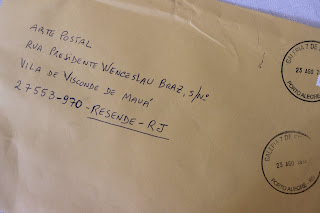 ARTE POSTAL
RUA PRESIDENTE WENCESLAU BRAZ, S/Nº
VILA DE VISCONDE DE MAUÁ
27553-970-RESENDE-RJ
GALERIA 7 DE
23 AGO
PORTO ALEGRE
GALERIA 7 DE
23 AGO
PORTO ALEGRE - RS